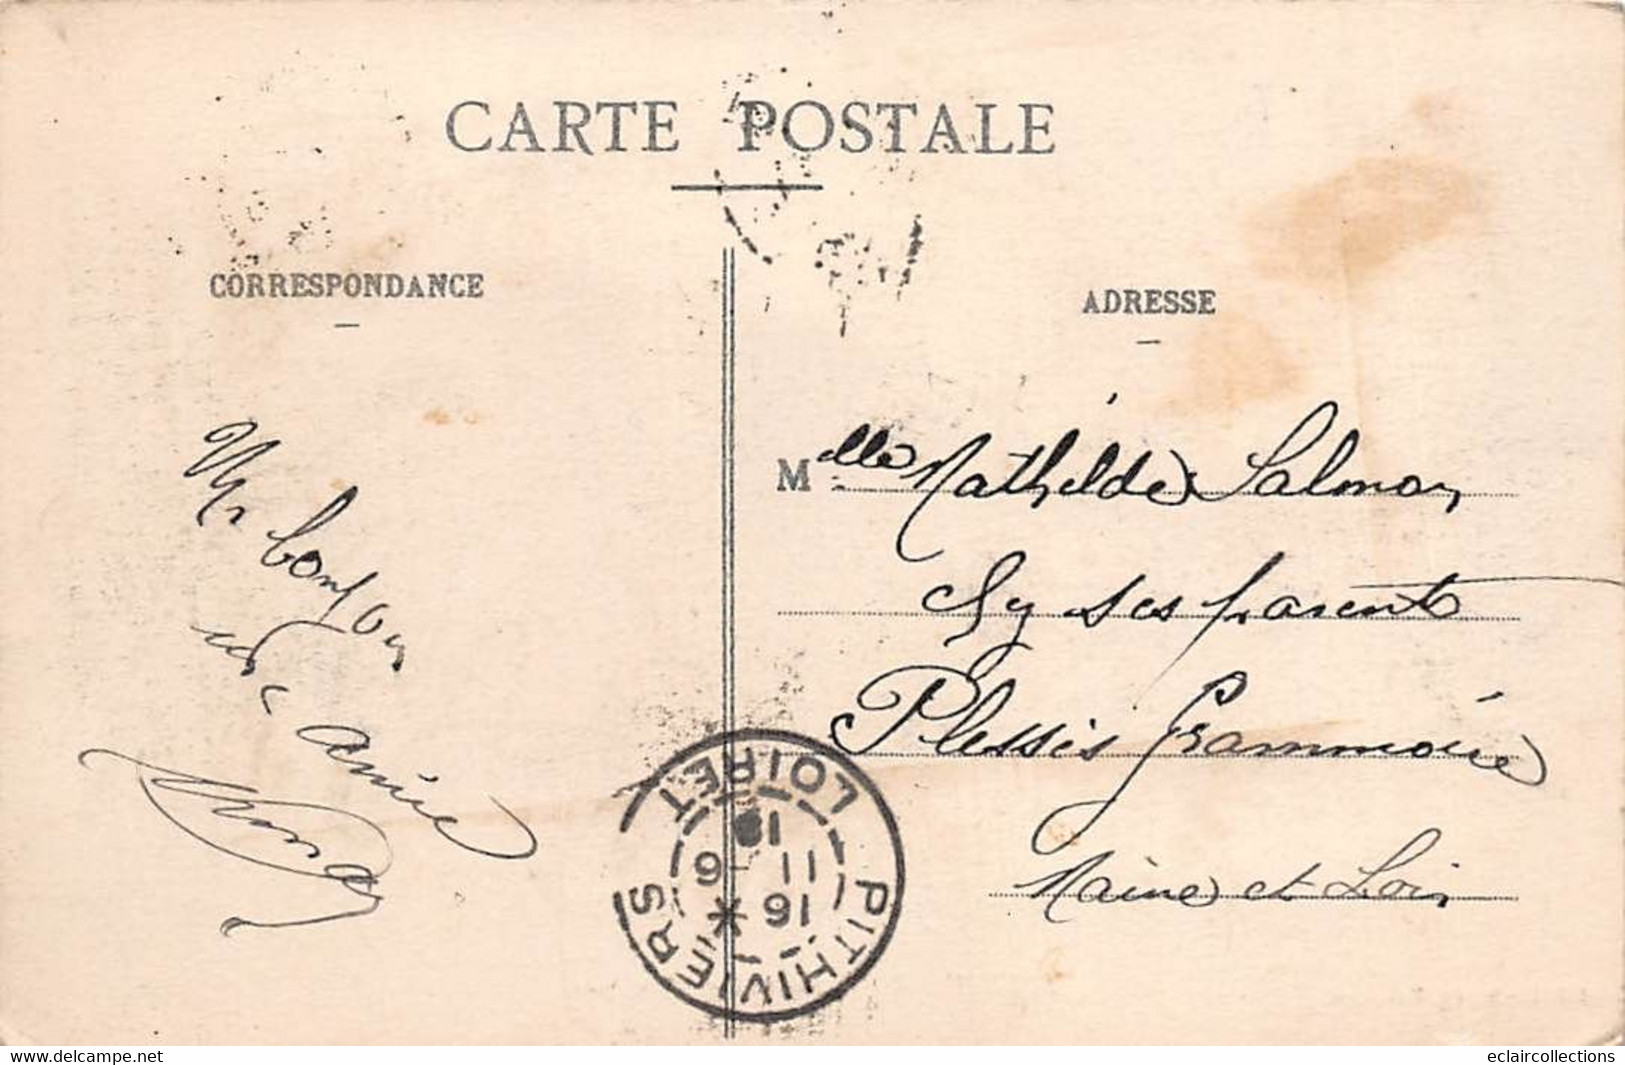 CARTE POSTALE
CORRESPONDANCE
Un bonjour
une amie
ADRESSE
Mlle Mathilde Salmon
Chez ses parents
Plessis Grammoire
Maine et Loire
PITHIVIERS
LOIRET
16
11-6
www.delcampe.net
eclaircollections